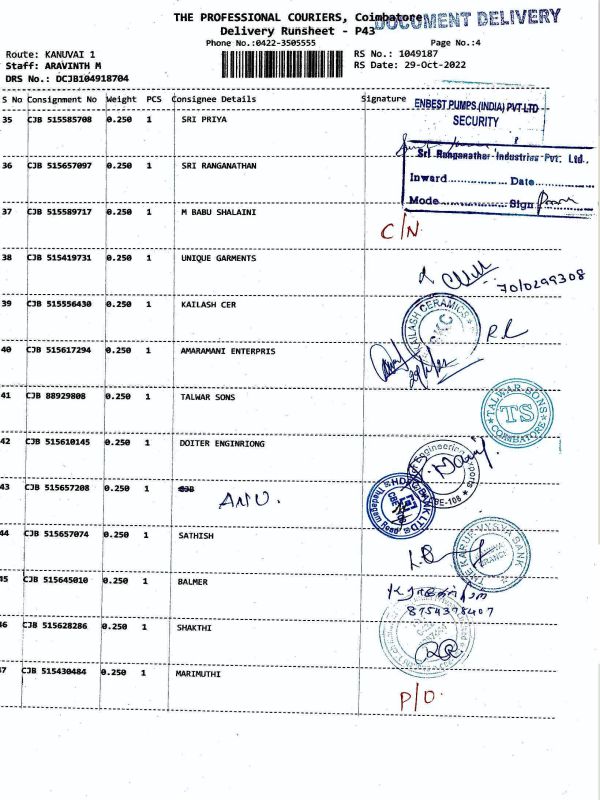 THE PROFESSIONAL COURIERS, Coimbatore
DOCUMENT DELIVERY
Delivery Runsheet - P43
Phone No.:0422-3505555 Page No.:4
Route: KANUVAI 1 RS No.: 1049187
Staff: ARAVINTH M RS Date: 29-Oct-2022
DRS No.: DCJB104918704
S No Consignment No Weight PCS Consignee Details Signature
ENBEST PUMPS (INDIA) PVT LTD
SECURITY
35 CJB 515585708 0.250 1 SRI PRIYA
Sri Ranganathar Industries Pvt. Ltd.,
36 CJB 515657097 0.250 1 SRI RANGANATHAN
Inward.................. Date..................
Mode.................. Sign
37 CJB 515589717 0.250 1 M BABU SHALAINI
C/N.
38 CJB 515419731 0.250 1 UNIQUE GARMENTS
7010299308
39 CJB 515556430 0.250 1 KAILASH CER
KAILASH CERAMICS
KC
40 CJB 515617294 0.250 1 AMARAMANI ENTERPRIS
41 CJB 88929808 0.250 1 TALWAR SONS
TALWAR SONS
TS
COIMBATORE
42 CJB 515610145 0.250 1 DOITER ENGINRIONG
43 CJB 515657208 0.250 1 CJB
ANU.
HDFC BANK LTD
44 CJB 515657074 0.250 1 SATHISH
THE KARUR VYSYA BANK
45 CJB 515645010 0.250 1 BALMER
8754378407
46 CJB 515628286 0.250 1 SHAKTHI
47 CJB 515430484 0.250 1 MARIMUTHI
P/O.